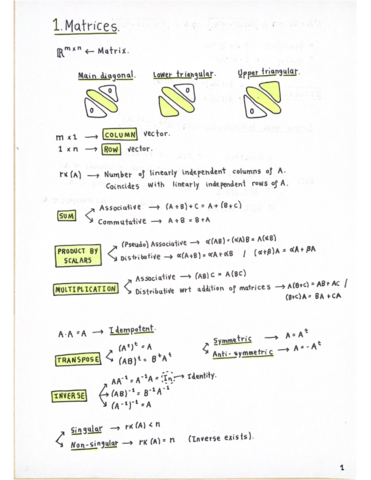 1. Matrices.
ℝ^{m×n} ← Matrix.
Main diagonal. Lower triangular. Upper triangular.
0 0 0 0
m×1 → COLUMN vector.
1×n → ROW vector.
rk(A) → Number of linearly independent columns of A.
Coincides with linearly independent rows of A.
SUM
Associative → (A+B)+C = A+(B+C)
Commutative → A+B = B+A
PRODUCT BY SCALARS
(Pseudo) Associative → α(AB) = (αA)B = A(αB)
Distributive → α(A+B) = αA + αB / (α+β)A = αA + βA
MULTIPLICATION
Associative → (AB)C = A(BC)
Distributive wrt addition of matrices → A(B+C) = AB + AC /
(B+C)A = BA + CA
A·A = A → Idempotent.
TRANSPOSE
(A^t)^t = A
(AB)^t = B^t A^t
Symmetric → A = A^t
Anti-symmetric → A = -A^t
INVERSE
AA^{-1} = A^{-1}A = In → Identity.
(AB)^{-1} = B^{-1}A^{-1}
(A^{-1})^{-1} = A
Singular → rk(A) < n
Non-singular → rk(A) = n (Inverse exists).
1